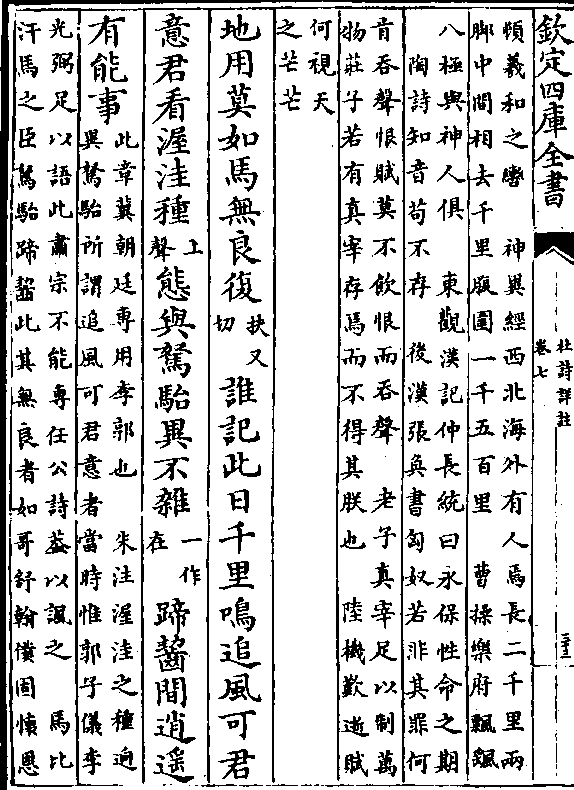 欽定四庫全書
杜詩詳註
卷七
頓羲和之轡 神異經西北海外有人焉長二千里兩
脚中間相去千里腹圍一千五百里 曹操樂府飄飖
八極與神人俱 東觀漢記仲長統曰永保性命之期
陶詩知音苟不存 後漢張奐書匈奴若非其罪何
肯吞聲恨賦莫不飲恨而吞聲 老子真宰足以制萬
物莊子若有真宰存焉而不得其朕也 陸機歎逝賦
何視天
之芒芒
地用莫如馬無良復扶又切誰記此日千里鳴追風可君
意君看渥洼種上聲態與駑駘異不雜一作在蹄齧間逍遥
有能事此章冀朝廷專用李郭也 朱注渥洼之種迥
異駑駘所謂追風可君意者當時惟郭子儀李
光弼足以語此肅宗不能專任公詩葢以諷之 馬比
汗馬之臣駑駘蹄齧此其無良者如哥舒翰僕固懷恩